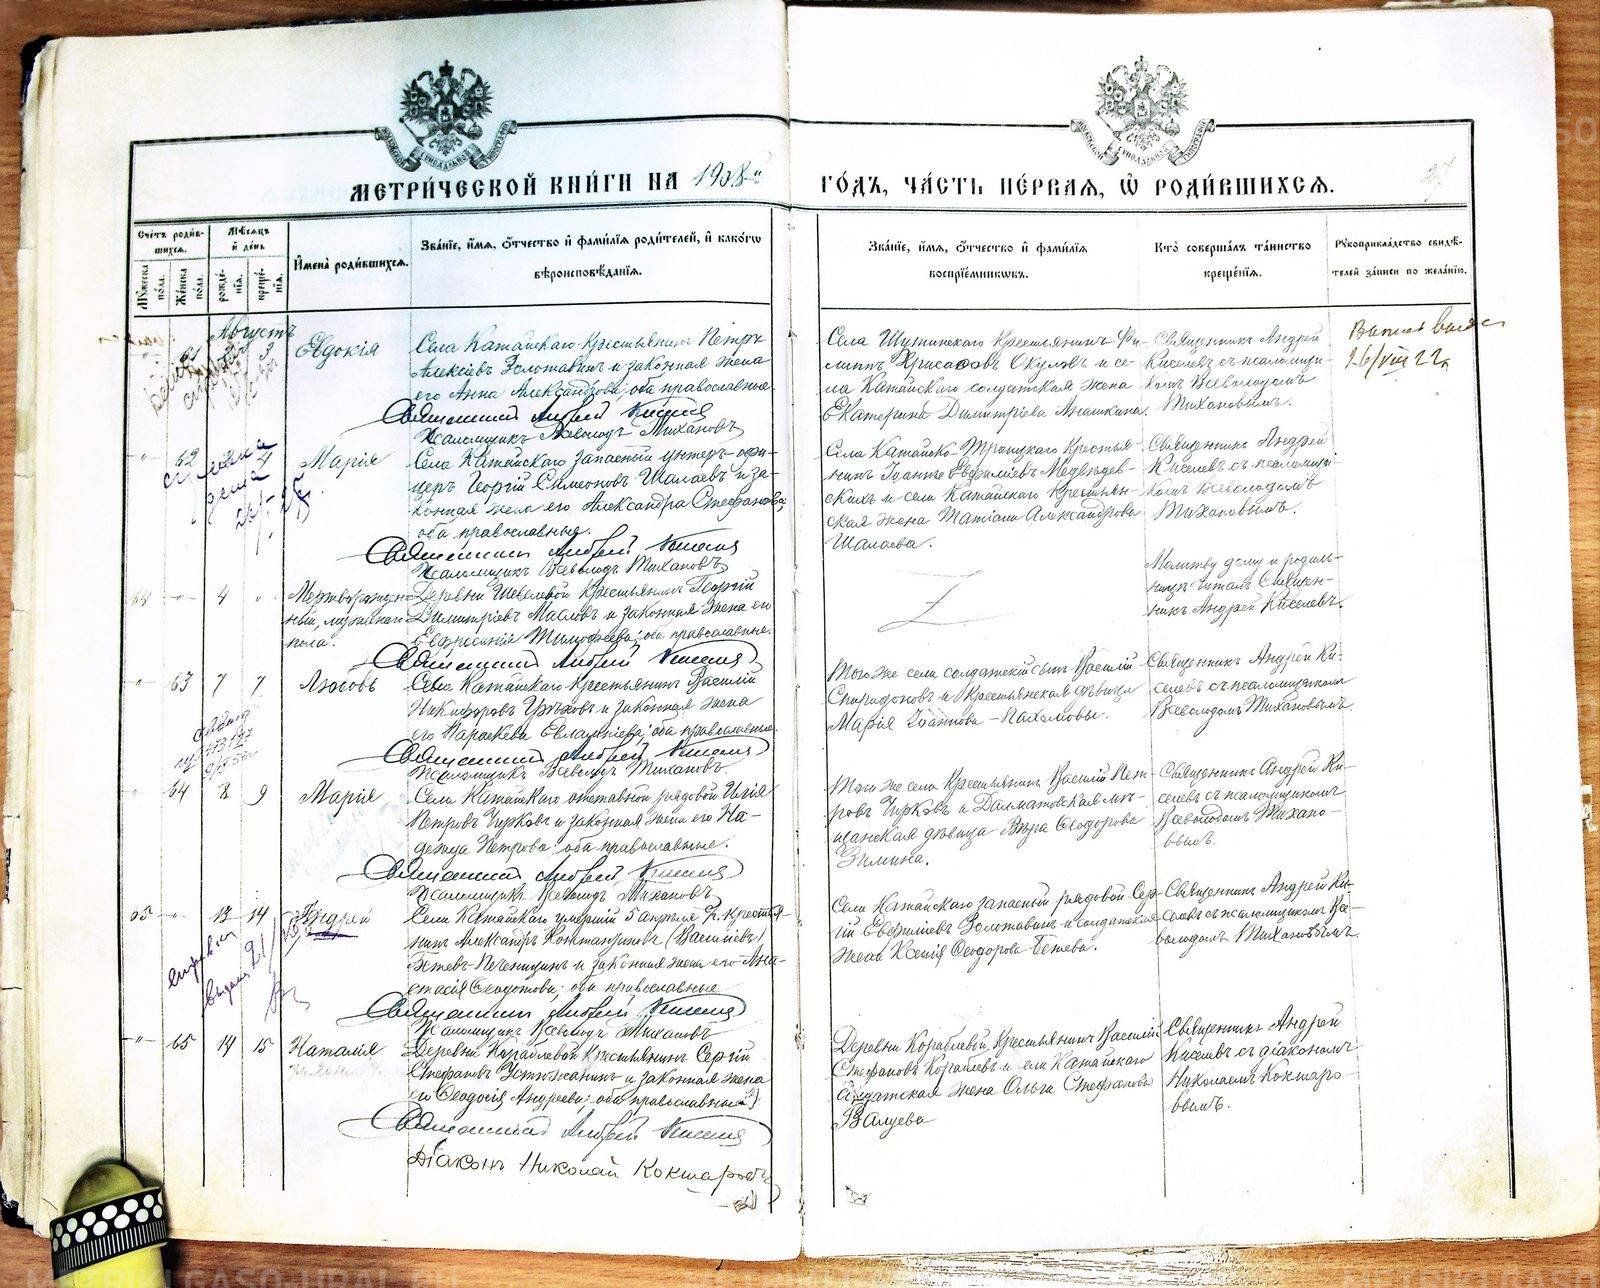 МЕТРИ́ЧЕСКОЙ КНИ́ГИ НА 1908й ГО́ДЪ, ЧА́СТЬ ПЕ́РВАЯ, Ѽ РОДИ́ВШИХСЯ.
27
Сче́тъ роди́в-
шихся.
Му́жеска по́ла.
Же́нска по́ла.
Мѣ́сяцъ
и҆ де́нь
рожде́-
нїя.
креще́-
нїя.
И҆мена̀ роди́вшихся.
Зва́нїе, и҆́мя, ѻ҆́тчество и҆ фами́лїя роди́телей, и҆ како́гѡ
вѣроисповѣ́данїя.
Зва́нїе, и҆́мя, ѻ҆́тчество и҆ фами́лїя
воспрїе́мниковъ.
Кто̀ соверша́лъ та́инство
креще́нїя.
Рꙋкоприкла́дство свидѣ́-
телей за́писи по жела́нїю.
Августъ
61
3
Евдокія
Села Катайскаго крестьянинъ Петръ
Алексѣевъ Золотавинъ и законная жена
его Анна Александрова; оба православные
Священникъ Андрей Киселевъ
Псаломщикъ Всеволодъ Тихановъ
Села Шутинскаго крестьянинъ Фи-
липпъ Хрисанфовъ Окуловъ и се-
ла Катайскаго солдатская жена
Екатерина Димитріева Анашкина.
Священникъ Андрей
Киселевъ съ псаломщи-
комъ Всеволодомъ
Тихановымъ.
26/VIII 22
62
4
Марія
Села Катайскаго запасный унтеръ-офи-
церъ Георгій Симеоновъ Шалаевъ и за-
конная жена его Александра Стефанова;
оба православные.
Священникъ Андрей Киселевъ
Псаломщикъ Всеволодъ Тихановъ
Села Катайско-Троицкаго крестья-
нинъ Іоаннъ Евфиміевъ Медвѣдев-
скихъ и села Катайскаго крестьян-
ская жена Татіана Александрова
Шалаева.
Священникъ Андрей
Киселевъ съ псаломщи-
комъ Всеволодомъ
Тихановымъ.
64
4
Мертворожден-
ный, мужескаго
пола.
Деревни Шевелевой крестьянинъ Георгій
Димитріевъ Масловъ и законная жена его
Евфросинія Тимофеева; оба православные.
Священникъ Андрей Киселевъ
Молитву дому и родиль-
ницѣ читалъ Священ-
никъ Андрей Киселевъ.
63
7
7
Любовь
Села Катайскаго крестьянинъ Василій
Никифоровъ Грѣховъ и законная жена
его Параскева Евлампіева; оба православные
Священникъ Андрей Киселевъ
Псаломщикъ Всеволодъ Тихановъ.
Того же села солдатскій сынъ Василій
Спиридоновъ и крестьянская дѣвица
Марія Іоаннова - Пахомовы.
Священникъ Андрей Ки-
селевъ съ псаломщикомъ
Всеволодомъ Тихановымъ.
64
8
9
Марія
Села Катайскаго отставной рядовой Илія
Петровъ Чирковъ и законная жена его На-
дежда Петрова; оба православные.
Священникъ Андрей Киселевъ
Псаломщикъ Всеволодъ Тихановъ
Того же села крестьянинъ Василій Пет-
ровъ Чирковъ и Далматовская мѣ-
щанская дѣвица Вѣра Ѳеодорова
Зимина.
Священникъ Андрей Ки-
селевъ съ псаломщикомъ
Всеволодомъ Тихано-
вымъ.
65
13
14
Андрей
Села Катайскаго умершій 5 апрѣля г. крестья-
нинъ Александръ Константиновъ (Васильевъ)
Бетевъ-Печеницинъ и законная жена его Ана-
стасія Ѳеодотова; оба православные
Священникъ Андрей Киселевъ
Псаломщикъ Всеволодъ Тихановъ
Села Катайскаго запасный рядовой Сер-
гій Евфиміевъ Золотавинъ и солдатская
жена Ксенія Ѳеодорова Бетева.
Священникъ Андрей Ки-
селевъ съ псаломщикомъ Все-
володомъ Тихановымъ
65
14
15
Наталія
Деревни Кораблевой крестьянинъ Сергій
Стефановъ Устюжанинъ и законная жена
его Ѳеодосія Андреева; оба православные
Священникъ Андрей Киселевъ
Діаконъ Николай Кокшаровъ
Деревни Кораблевой крестьянинъ Василій
Стефановъ Кораблевъ и села Катайскаго
солдатская жена Ольга Стефанова
Валуева
Священникъ Андрей
Киселевъ съ діакономъ
Николаемъ Кокшаро-
вымъ.